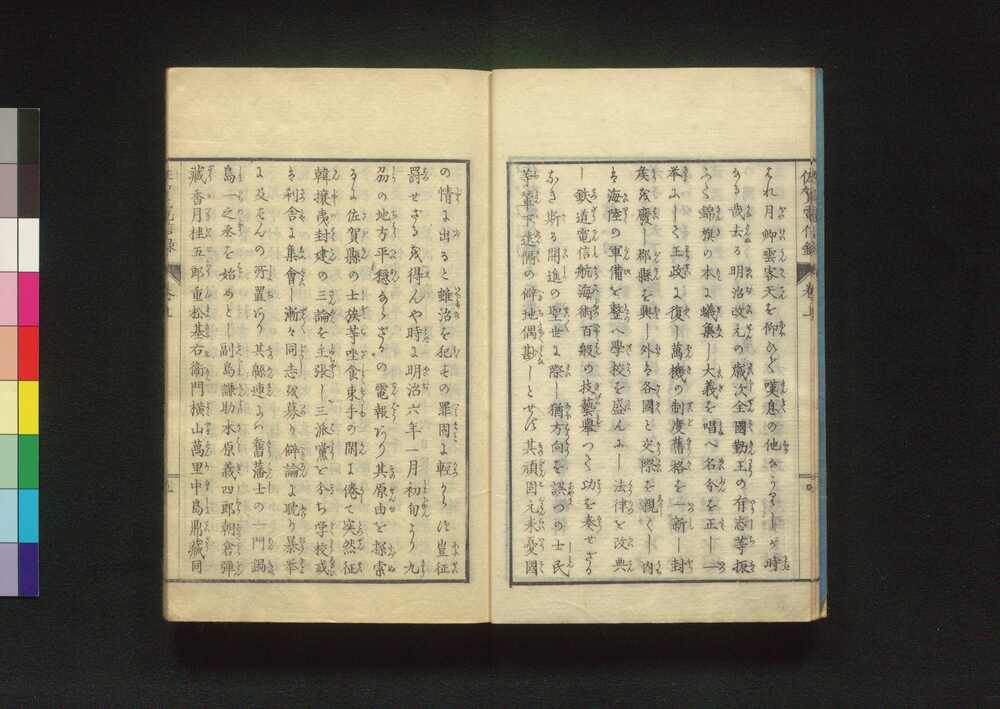 佐賀電信録 巻上
れ月卿雲客天を仰ひで嘆息の他なかりしが時
なる哉去る明治改元の歳次全國勤王の有志等振
ふて錦旗の本に蟻集し大義を唱へ名分を正し一
挙にして王政に復し萬機の制度舊格を一新し封
矦を廢し郡縣を興し外は各國と交際を親くし内
は海陸の軍備を整へ學校を盛んにし法律を改典
し鉄道電信航海術百般の技藝擧つて功を奏せざる
なき斯る開進の聖世に際し猶方向を誤つの士民
等輦下遠隔の僻地偶尠しとせず其頑固元來憂國
の情に出ると雖治を犯もの罪固より輕からず豈征
罸せざるを得んや時に明治六年一月初旬より九
刕の地方平穏ならざるの電報あり其原由を探索
するに佐賀縣の士族等坐食束手の閑に倦て突然征
韓攘夷封建の三論を主張し三派黨を分ち学校或
は利舎に集會し漸々同志を募り辯論に耽り暴挙
に及ばんの所置あり其縣連名の舊藩士の一門鍋
島一之丞を始めとし副島謙助木原義四郎朝倉彈
藏香月桂五郎重松基右衛門横山萬里中島鼎藏同